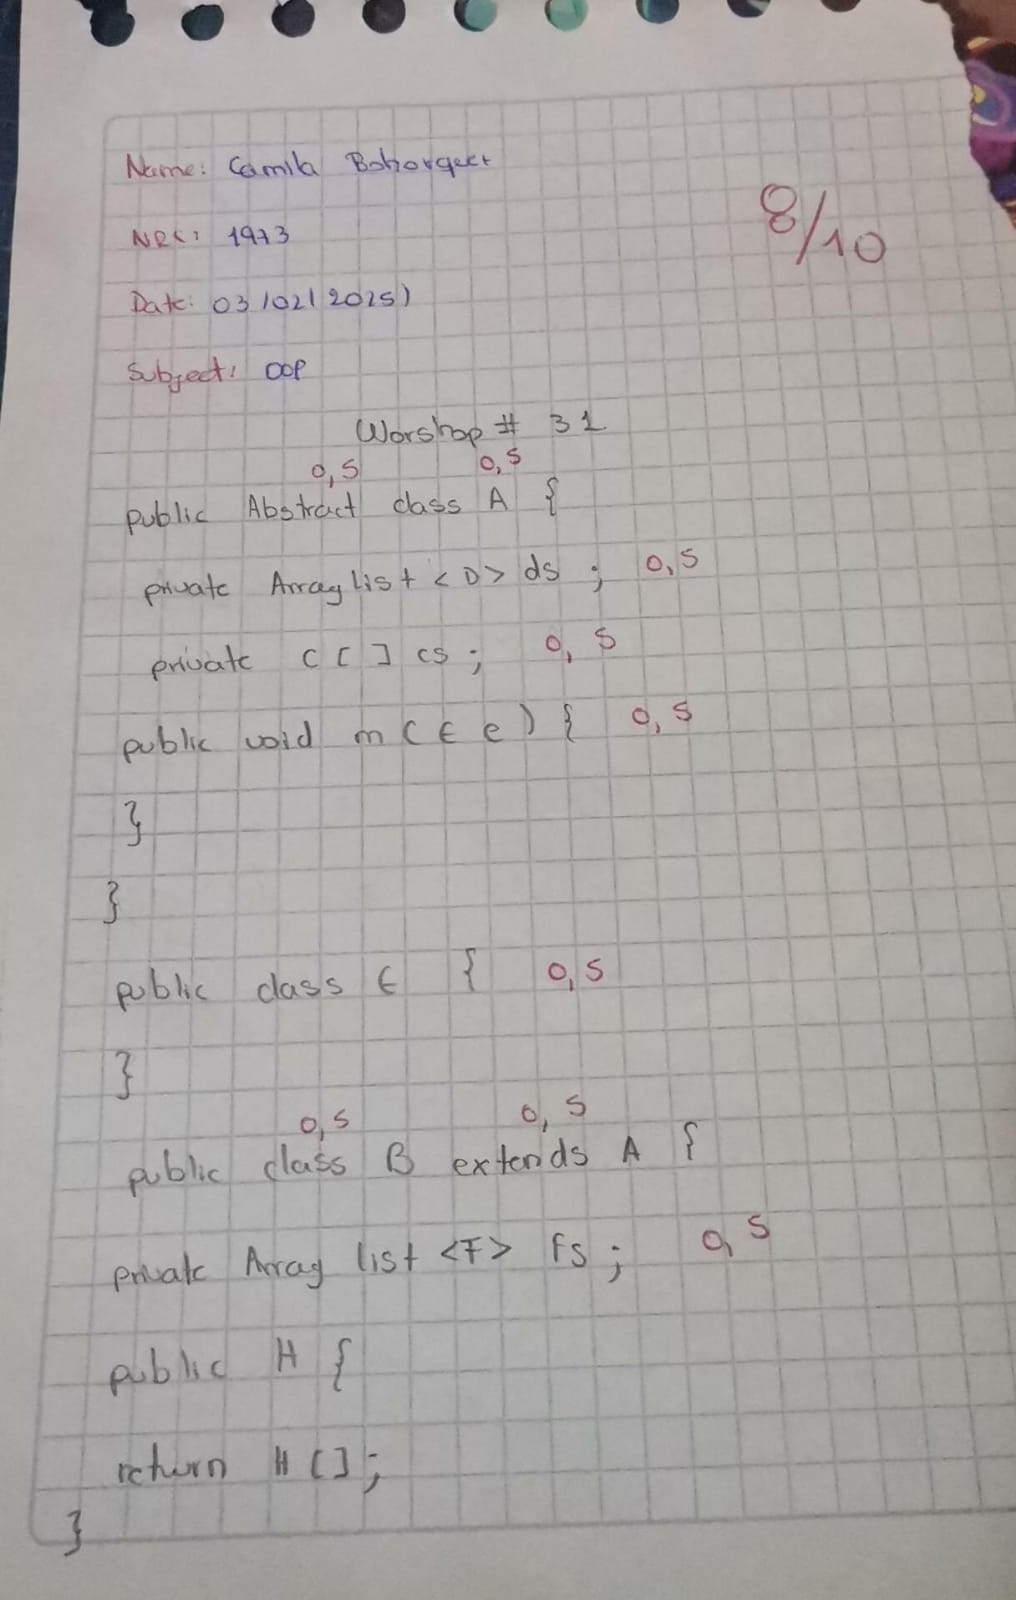 Name: Camila Bohorquez
8/10
NRC: 1973
Date: 03/02/2025)
Subject: OOP
Worshop # 31
0,5 0,5
public Abstract class A {
private Array list <D> ds ; 0,5
private C [ ] cs ; 0,5
public void m ( E e ) { 0,5
}
}
public class E { 0,5
}
0,5 0,5
public class B extends A {
private Array list <F> fs ; 0,5
public H {
return H [ ] ;
}